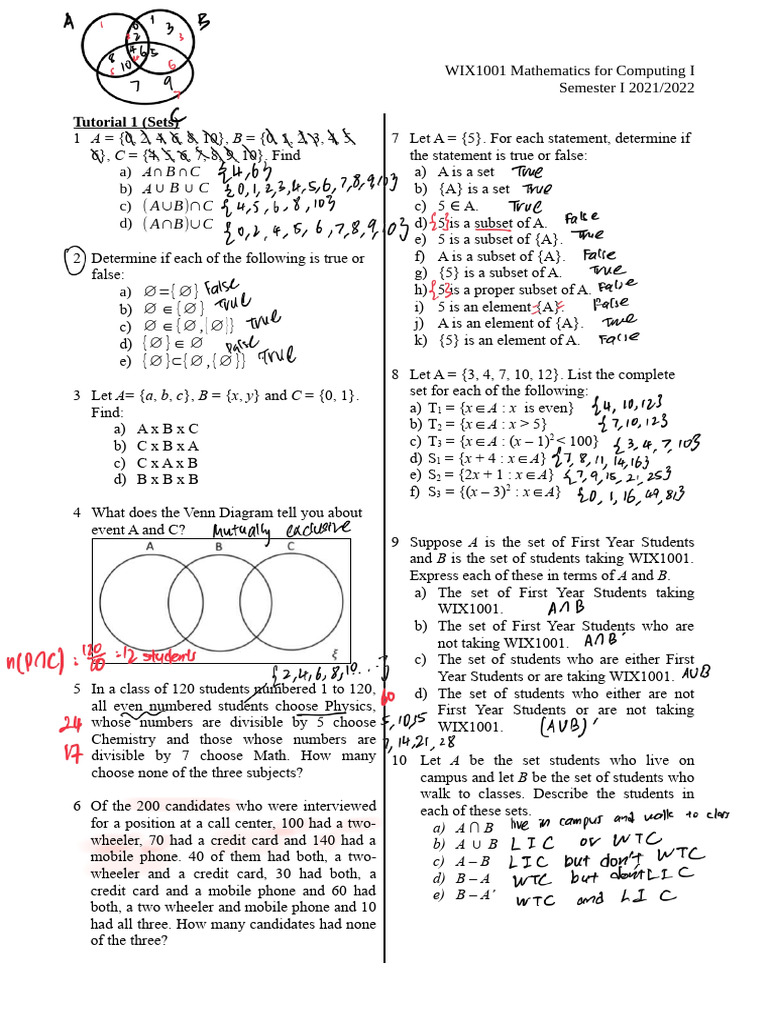 A
B
0
1
3
1
2
3
8
4
6
5
10
7
9
7
C
WIX1001 Mathematics for Computing I
Semester I 2021/2022
Tutorial 1 (Sets)
1 A = {0, 2, 4, 6, 8, 10}, B = {0, 1, 2, 3, 4, 5,
6}, C = {4, 5, 6, 7, 8, 9, 10}, Find
a) A∩B∩C {4,6}
b) A∪B∪C {0,1,2,3,4,5,6,7,8,9,10}
c) (A∪B)∩C {4,5,6,8,10}
d) (A∩B)∪C {0,2,4,5,6,7,8,9,10}
2 Determine if each of the following is true or
false:
a) ∅={∅} False
b) ∅∈{∅} True
c) ∅∈{∅,{∅}} True
d) {∅}∈∅ False
e) {∅}⊂{∅,{∅}} True
3 Let A= {a, b, c}, B = {x, y} and C = {0, 1}.
Find:
a) A x B x C
b) C x B x A
c) C x A x B
d) B x B x B
4 What does the Venn Diagram tell you about
event A and C? Mutually exclusive
A B C
ξ
n(P∩C) = 120/60 = 12 students
{2,4,6,8,10...}
5 In a class of 120 students numbered 1 to 120,
all even numbered students choose Physics, 60
24 whose numbers are divisible by 5 choose 5,10,15
17 Chemistry and those whose numbers are 7,14,21,28
divisible by 7 choose Math. How many
choose none of the three subjects?
6 Of the 200 candidates who were interviewed
for a position at a call center, 100 had a two-
wheeler, 70 had a credit card and 140 had a
mobile phone. 40 of them had both, a two-
wheeler and a credit card, 30 had both, a
credit card and a mobile phone and 60 had
both, a two wheeler and mobile phone and 10
had all three. How many candidates had none
of the three?
7 Let A = {5}. For each statement, determine if
the statement is true or false:
a) A is a set True
b) {A} is a set True
c) 5 ∈ A. True
d) {5} is a subset of A. False
e) 5 is a subset of {A}. True
f) A is a subset of {A}. False
g) {5} is a subset of A. True
h) {5} is a proper subset of A. False
i) 5 is an element {A}. False
j) A is an element of {A}. True
k) {5} is an element of A. False
8 Let A = {3, 4, 7, 10, 12}. List the complete
set for each of the following:
a) T₁ = {x∈A : x is even} {4,10,12}
b) T₂ = {x∈A : x > 5} {7,10,12}
c) T₃ = {x∈A : (x – 1)² < 100} {3,4,7,10}
d) S₁ = {x + 4 : x∈A} {7,8,11,14,16}
e) S₂ = {2x + 1 : x∈A} {7,9,15,21,25}
f) S₃ = {(x – 3)² : x∈A} {0,1,16,49,81}
9 Suppose A is the set of First Year Students
and B is the set of students taking WIX1001.
Express each of these in terms of A and B.
a) The set of First Year Students taking
WIX1001. A∩B
b) The set of First Year Students who are
not taking WIX1001. A∩B'
c) The set of students who are either First
Year Students or are taking WIX1001. A∪B
d) The set of students who either are not
First Year Students or are not taking
WIX1001. (A∪B)'
10 Let A be the set students who live on
campus and let B be the set of students who
walk to classes. Describe the students in
each of these sets.
a) A ∩ B live in campus and walk to class
b) A ∪ B LIC or WTC
c) A – B LIC but don't WTC
d) B – A WTC but don't LIC
e) B – A' WTC and LIC